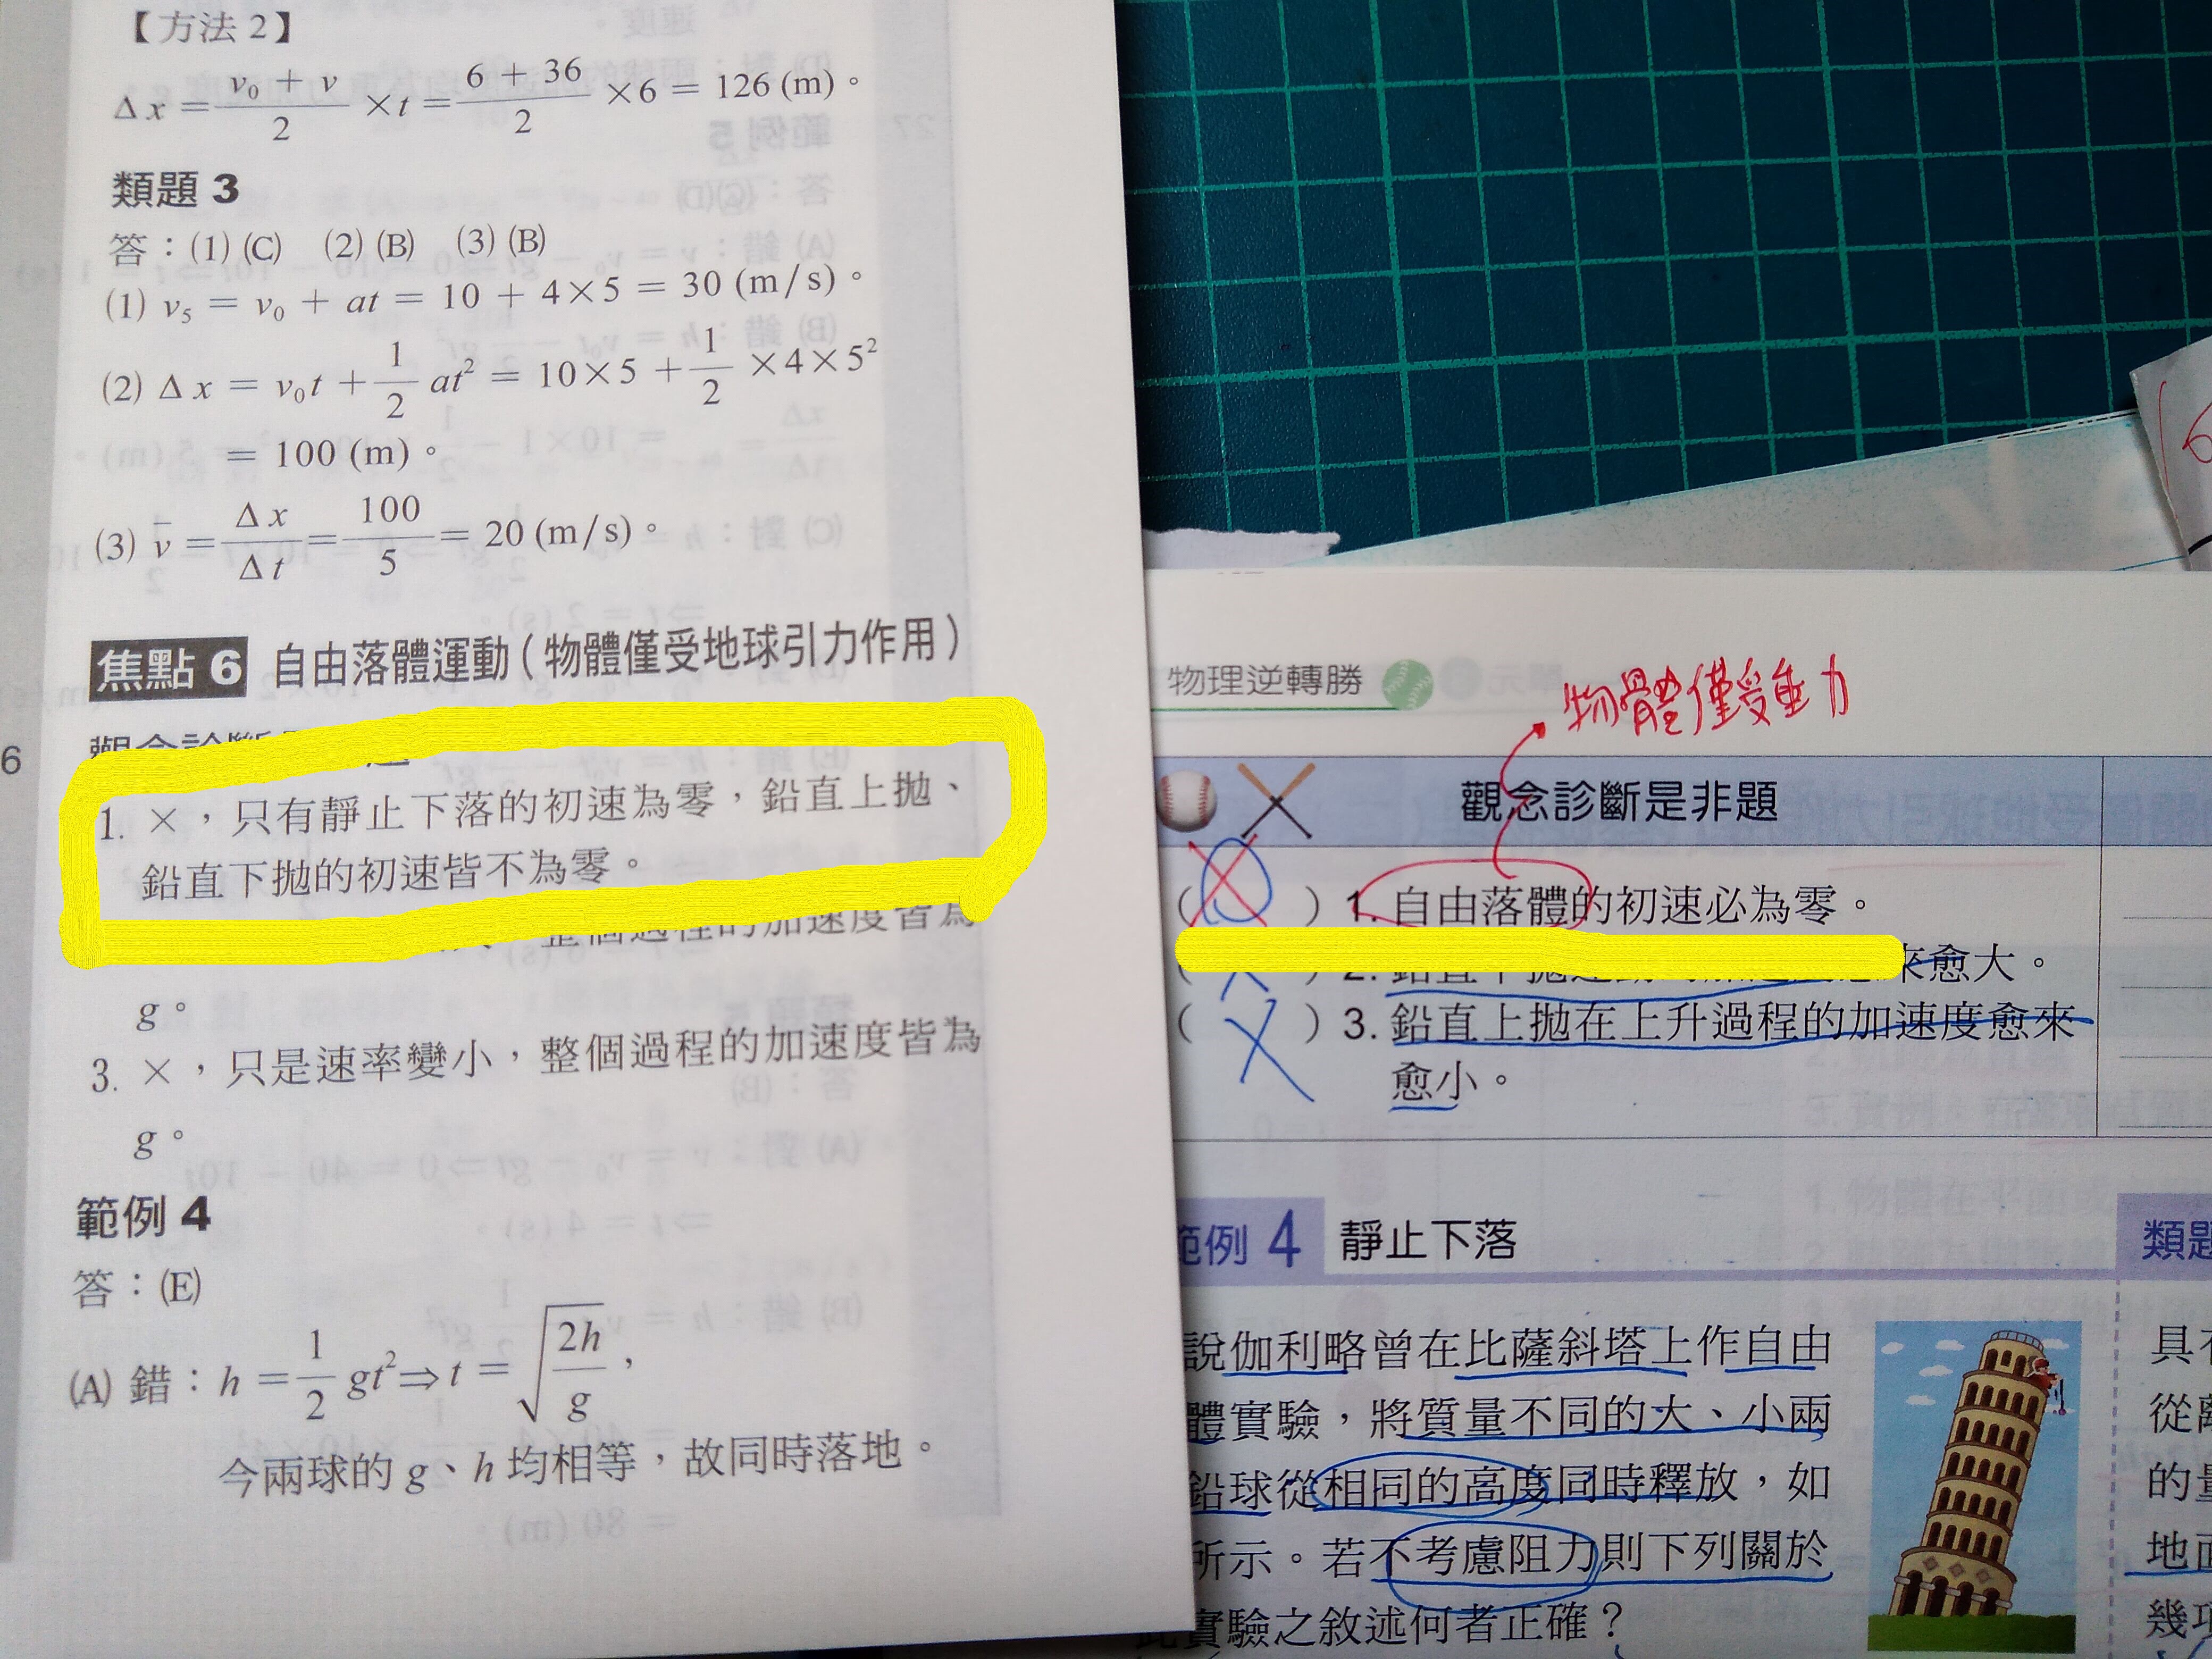 【方法2】
Δx = (v₀ + v)/2 × t = (6 + 36)/2 × 6 = 126 (m)。
類題 3
答：(1) (C) (2) (B) (3) (B)
(1) v₅ = v₀ + at = 10 + 4×5 = 30 (m/s)。
(2) Δx = v₀t + 1/2 at² = 10×5 + 1/2 ×4×5²
= 100 (m)。
(3) v̄ = Δx/Δt = 100/5 = 20 (m/s)。
焦點 6 自由落體運動(物體僅受地球引力作用)
6
1. ×，只有靜止下落的初速為零，鉛直上拋、
鉛直下拋的初速皆不為零。
整個過程的加速度皆為
g。
3. ×，只是速率變小，整個過程的加速度皆為
g。
範例 4
答：(E)
(A) 錯：h = 1/2 gt² ⇒ t = √(2h/g)，
今兩球的 g、h 均相等，故同時落地。
物理逆轉勝
物體僅受重力
觀念診斷是非題
( ) 1. 自由落體的初速必為零。
( ) 2. 來愈大。
(×) 3. 鉛直上拋在上升過程的加速度愈來
愈小。
範例 4 靜止下落
類題
說伽利略曾在比薩斜塔上作自由
體實驗，將質量不同的大、小兩
鉛球從相同的高度同時釋放，如
所示。若不考慮阻力則下列關於
此實驗之敘述何者正確？
具有
的量
地面
幾項